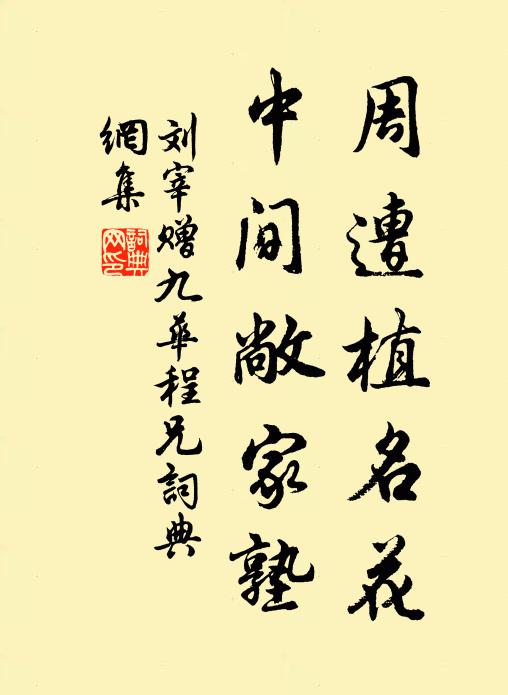 周遭植名花
中间敞家塾
刘宰赠九华程兄詞典
網集
詞典網印